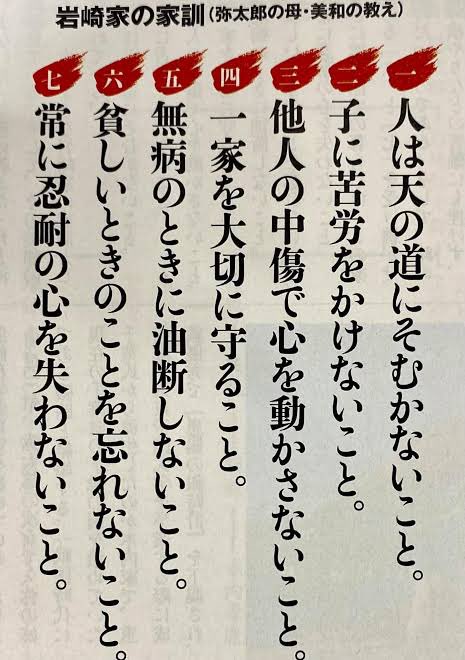 岩崎家の家訓(弥太郎の母・美和の教え)
一 人は天の道にそむかないこと。
二 子に苦労をかけないこと。
三 他人の中傷で心を動かさないこと。
四 一家を大切に守ること。
五 無病のときに油断しないこと。
六 貧しいときのことを忘れないこと。
七 常に忍耐の心を失わないこと。